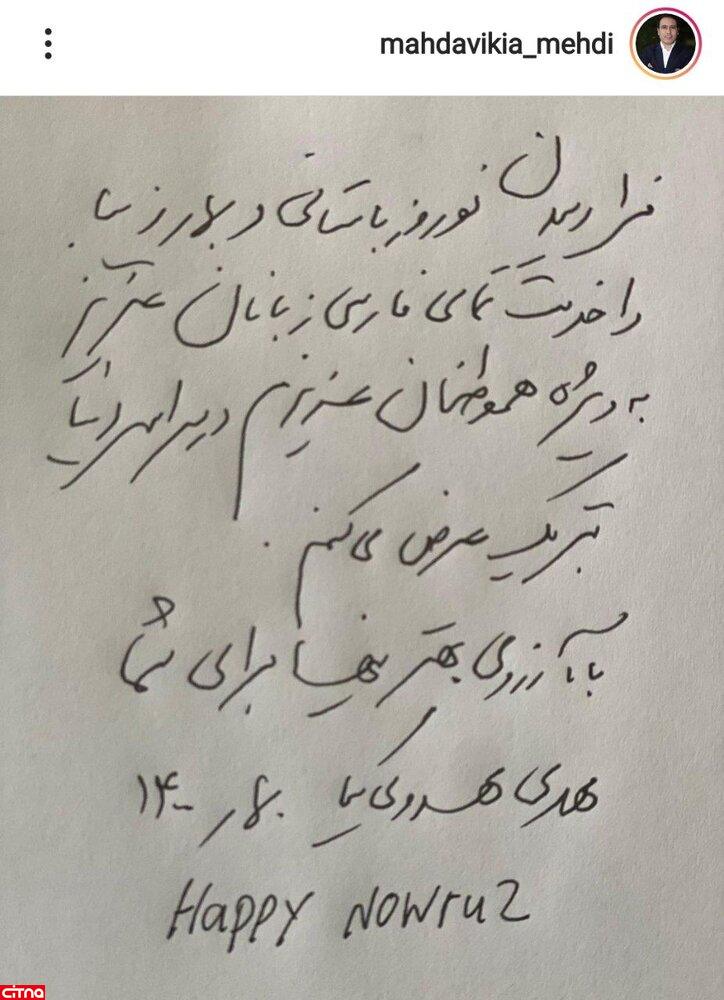 mahdavikia_mehdi
فرا رسیدن نوروز باستانی و بهار زیبا
را خدمت تمامی فارسی زبانان عزیز
به ویژه هموطنان عزیزم در سراسر دنیا
تبریک عرض می‌کنم.
با آرزوی بهترینها برای شما
مهدی مهدوی کیا بهار ۱۴۰۰
Happy Nowruz
CITNA